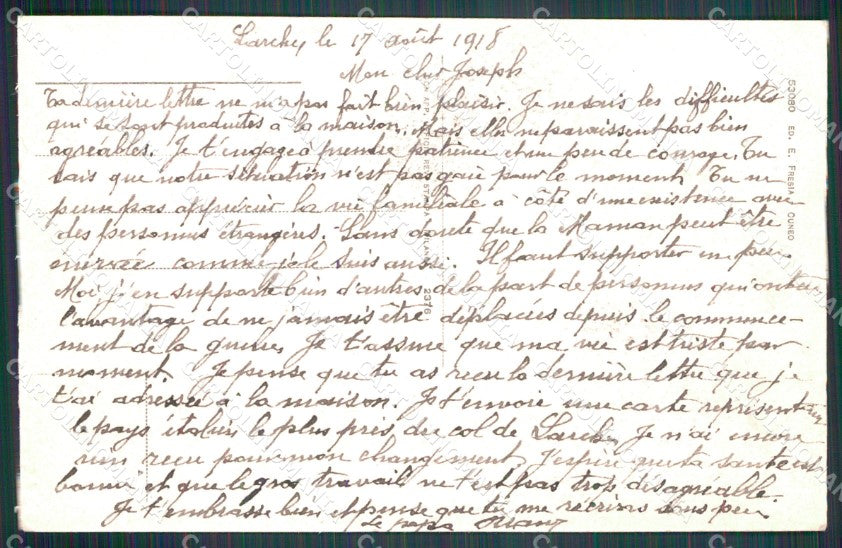 Larche, le 17 août 1918
Mon cher Joseph
Ta dernière lettre ne m'a pas fait bien plaisir. Je ne sais les difficultés
qui se sont produites à la maison. Mais elles me paraissent pas bien
agréables. Je t'engage à prendre patience et un peu de courage. Tu
sais que notre situation n'est pas gaie pour le moment. Tu ne
peux pas apprécier la vie familiale à côté d'une existence avec
des personnes étrangères. Sans doute que la Maman peut être
énervée comme je le suis aussi. Il faut supporter un peu.
Moi j'en supporte bien d'autres de la part de personnes qui ont eu
l'avantage de ne jamais être déplacées depuis le commence-
ment de la guerre. Je t'assure que ma vie est triste par
moment. Je pense que tu as reçu la dernière lettre que je
t'ai adressée à la maison. Je t'envoie une carte représentant
le pays italien le plus près du col de Larche. Je n'ai encore
rien reçu pour mon changement. J'espère que ta santé est
bonne et que le gros travail ne t'est pas trop désagréable.
Je t'embrasse bien et pense que tu me recrires sous peu.
Le papa
53080 ED. E. FRESTA CUNEO
2316
CARTOLINOMANIA